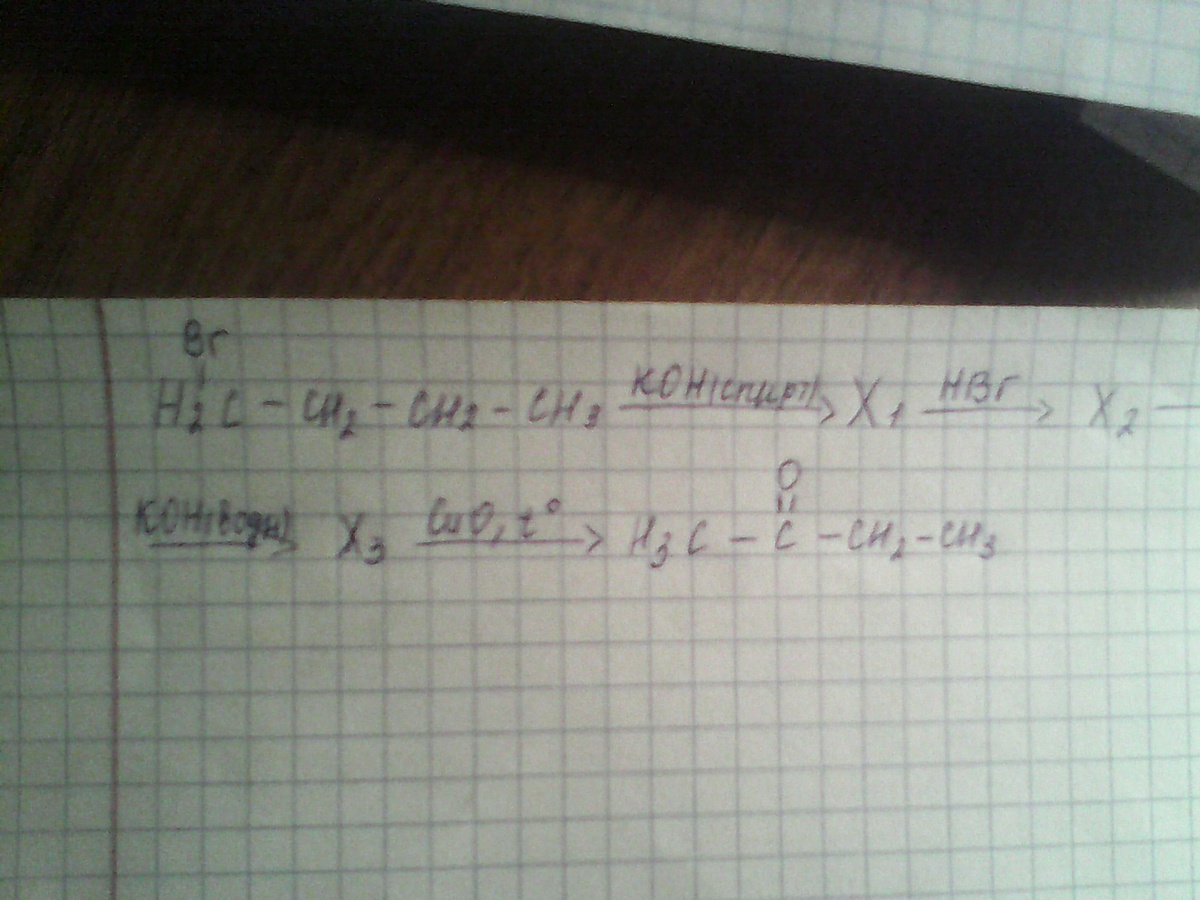 Br
H₂C – CH₂ – CH₂ – CH₃ KOH(спирт) X₁ HBr X₂
KOH(водн) X₃ CuO, t° H₃C – C – CH₂ – CH₃
O